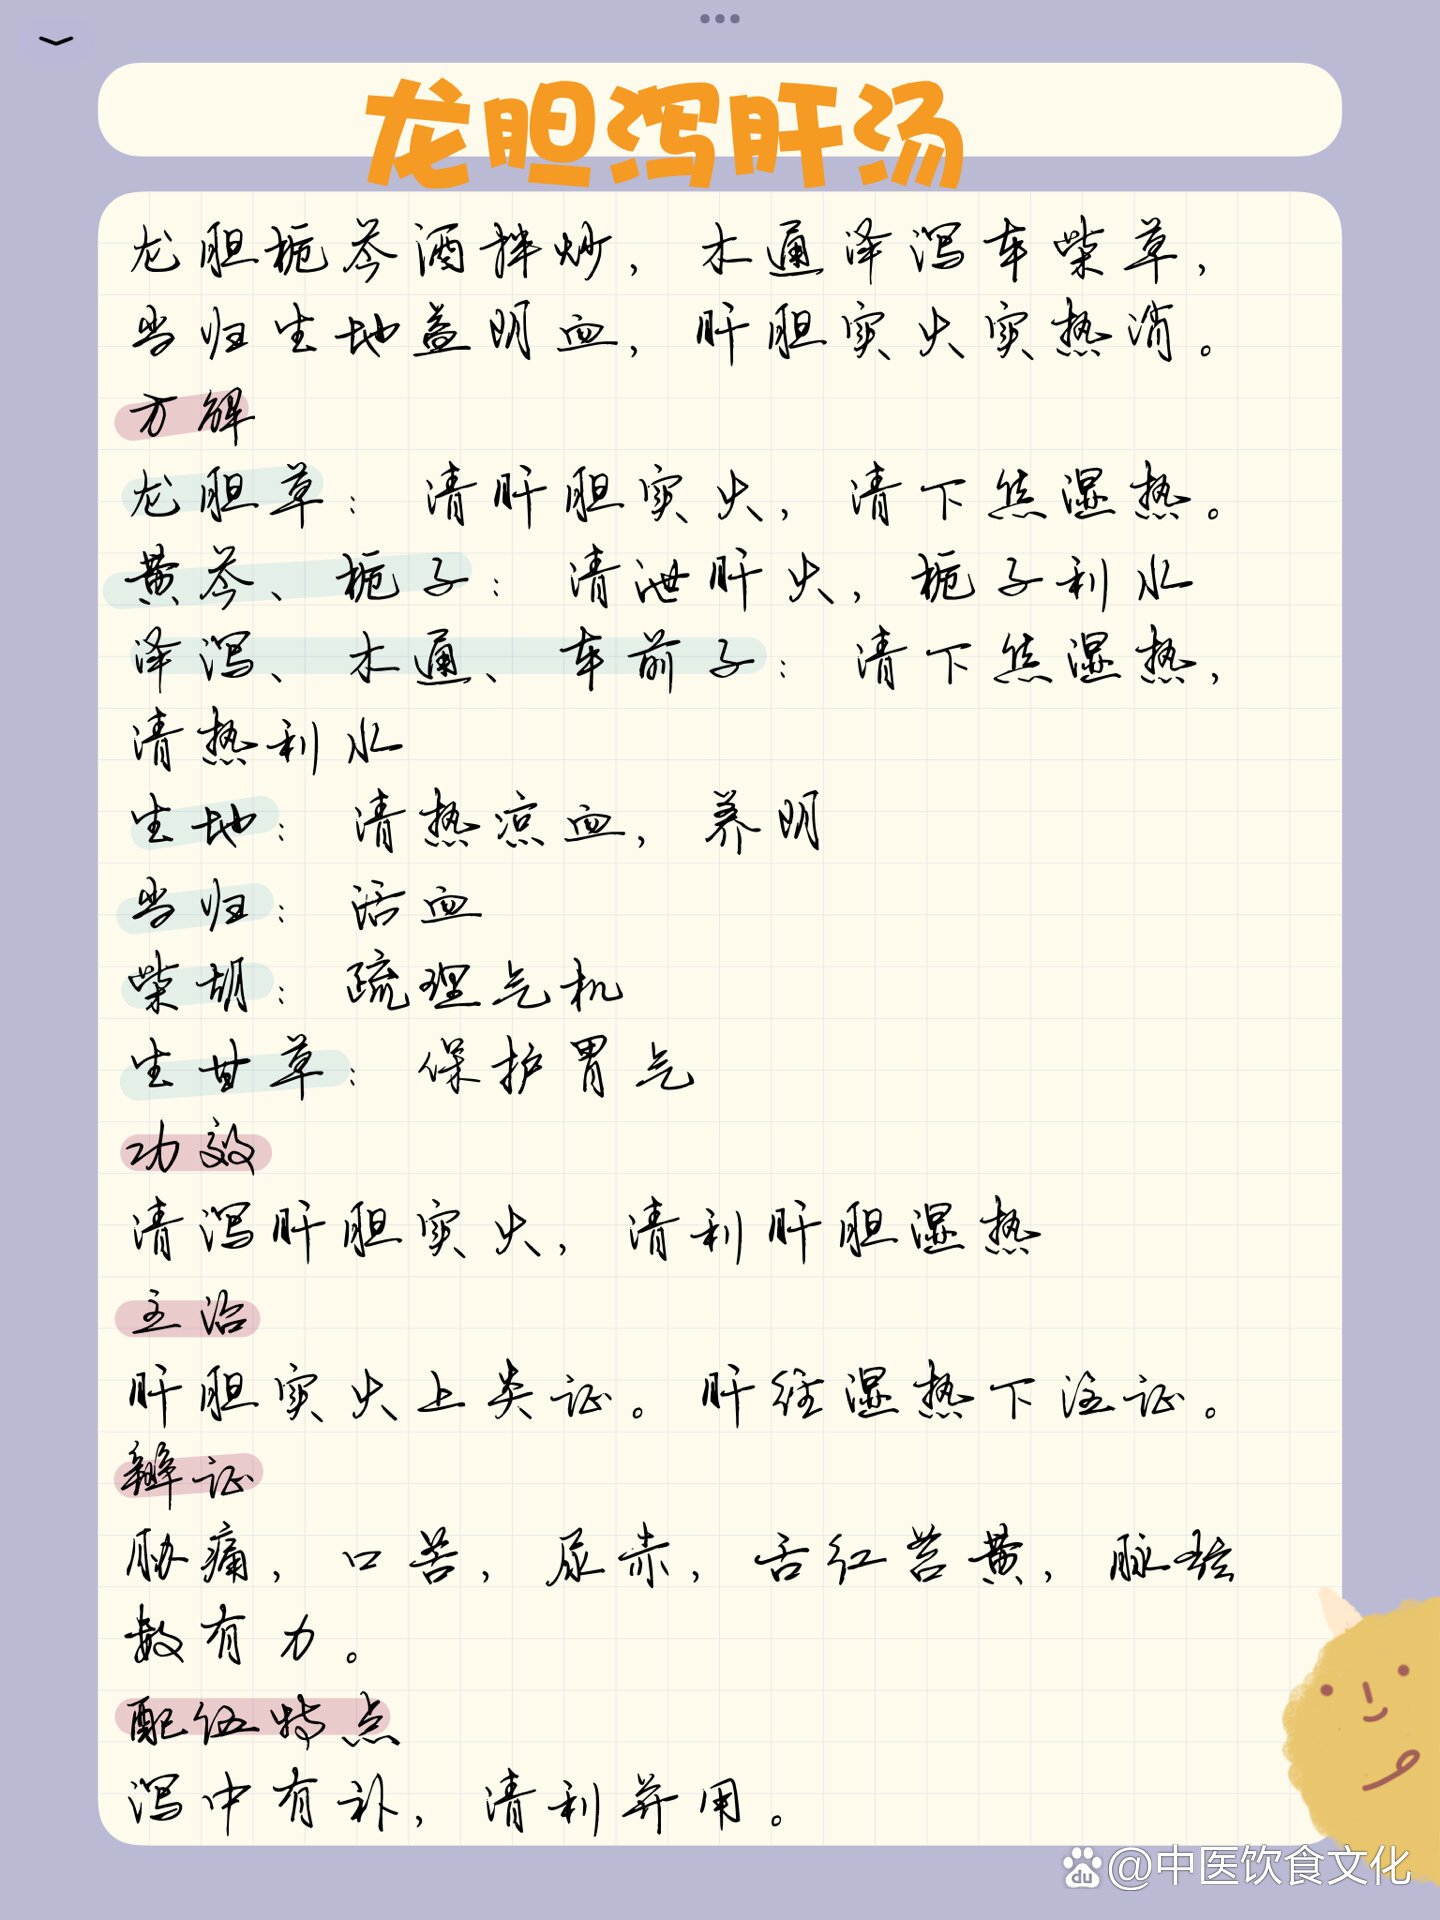 龙胆泻肝汤
龙胆栀芩酒拌炒，木通泽泻车柴草，
当归生地益阴血，肝胆实火实热消。
方解
龙胆草：清肝胆实火，清下焦湿热。
黄芩、栀子：清泄肝火，栀子利水
泽泻、木通、车前子：清下焦湿热，
清热利水
生地：清热凉血，养阴
当归：活血
柴胡：疏理气机
生甘草：保护胃气
功效
清泻肝胆实火，清利肝胆湿热
主治
肝胆实火上炎证。肝经湿热下注证。
辨证
胁痛，口苦，尿赤，舌红苔黄，脉弦
数有力。
配伍特点
泻中有补，清利并用。
du @中医饮食文化